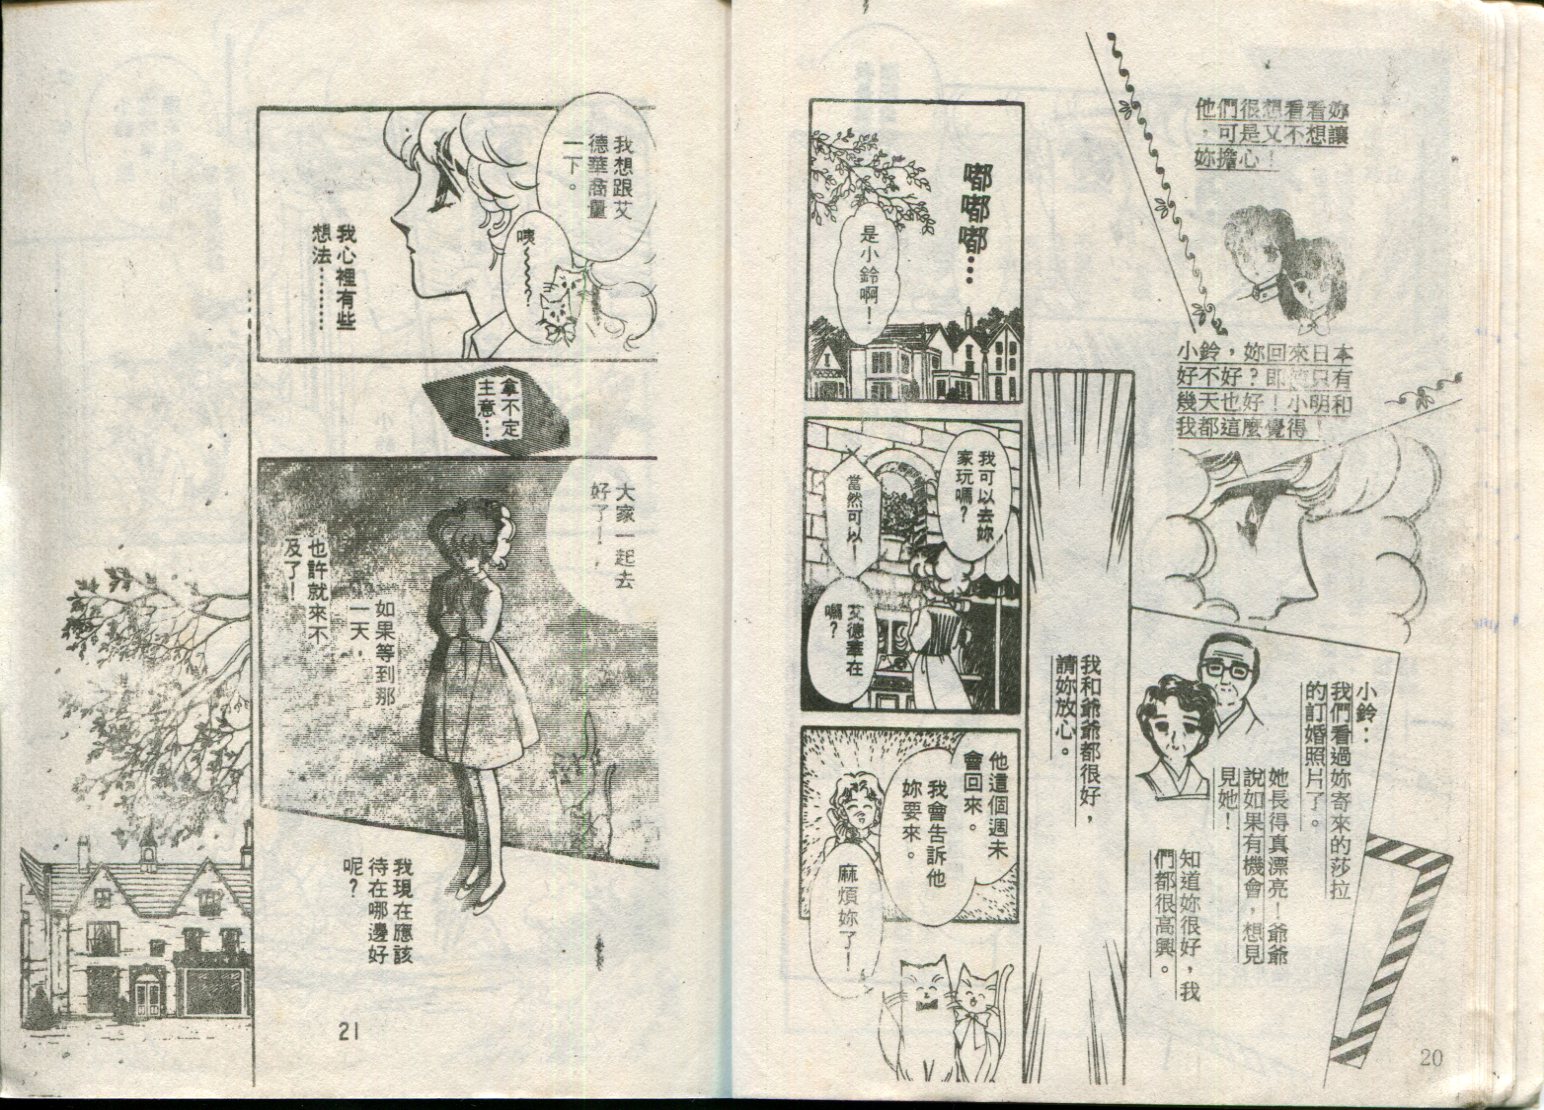 他們很想看看妳
，可是又不想讓
妳擔心！
小鈴，妳回來日本
好不好？即使只有
幾天也好！小明和
我都這麼覺得！
小鈴：
我們看過妳寄來的莎拉
的訂婚照片了。
她長得真漂亮！爺爺
說如果有機會，想見
見她！
知道妳很好，我
們都很高興。
我和爺爺都很好，
請妳放心。
嘟嘟嘟…
是小鈴啊！
我可以去妳
家玩嗎？
當然可以！
艾德華在
嗎？
他這個週末
會回來。
我會告訴他
妳要來。
麻煩妳了！
20
我想跟艾
德華商量
一下。
咦～～～？
我心裡有些
想法…………
拿不定
主意…
大家一起去
好了！，
如果等到那
一天，
也許就來不
及了！
我現在應該
待在哪邊好
呢？
21